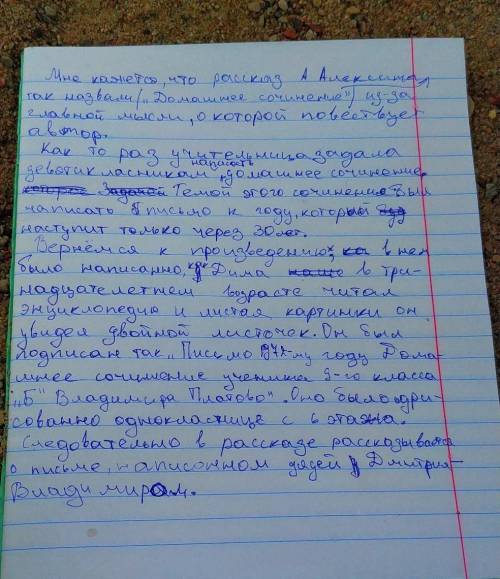 Мне кажется, что рассказ А Алексина
так назвали („Домашнее сочинение") из-за
главной мысли, о которой повествует
автор.
Как то раз учительница задала
написать
девятикласникам, домашнее сочинение.
Темой этого сочинение был
написать письмо к году, который
наступит только через 30 лет.
Вернёмся к произведению, в нем
было написанно, как Дима в три-
надцателетнем возрасте читал
энциклопедию и листая картинки он
увидел двойной листочек. Он был
подписан так „Письмо 197 -му году Дома-
шнее сочинение ученика 9-го класса
„Б" Владимира Платово". Оно было адри-
сованно однокласнице с 6 этажа.
Следовательно в рассказе рассказывается
о письме, написонном дядей Дмитрия-
Владимиром.